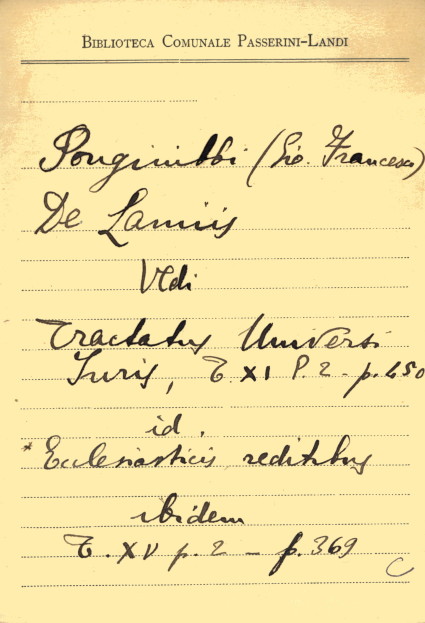 BIBLIOTECA COMUNALE PASSERINI-LANDI
Ponginibbi (Gio. Francesco)
De Lamiis
Vedi
Tractatus Universi
Iuris, T. XI P. 2 - p. 450
id.
* Ecclesiasticis reditibus
ibidem
T. XV p. 2 - p. 369
C